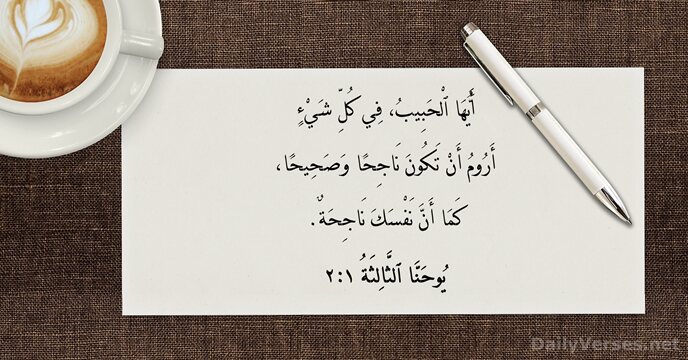 أَيُّهَا ٱلْحَبِيبُ، فِي كُلِّ شَيْءٍ
أَرُومُ أَنْ تَكُونَ نَاجِحًا وَصَحِيحًا،
كَمَا أَنَّ نَفْسَكَ نَاجِحَةٌ.
يُوحَنَّا ٱلثَّالِثَةُ ٢:١
DailyVerses.net